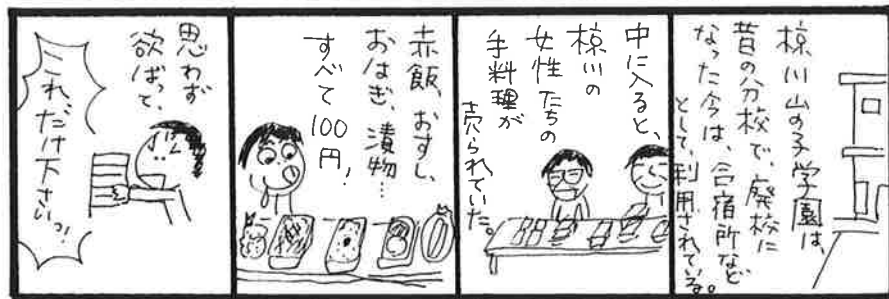 椋川山の子学園は、
昔の分校で、廃校に
なった今は、合宿所など
として、利用されている。
中に入ると、
椋川の
女性たちの
手料理が
売られていた。
赤飯、おすし、
おはぎ、漬物…
すべて100円！
思わず
欲ばって、
これ、だけ下さいっ！